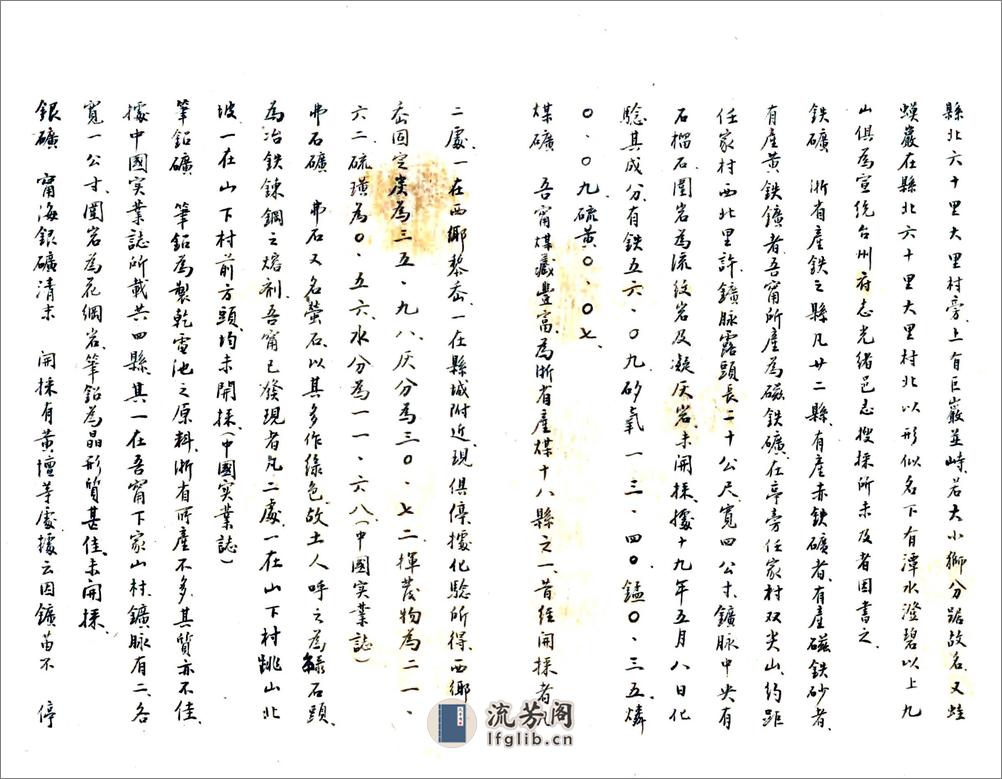 縣北六十里大里村旁上有巨巖並峙若大小獅分踞故名又蛙
蟆巖在縣北六十里大里村北以形似名下有潭水澄碧以上九
山俱為宣統台州府志光緒邑志搜採所未及者因書之
鐵礦　浙省產鐵之縣凡廿二縣有產赤鐵礦者有產磁鐵砂者
有產黃鐵鑛者吾甯所產為磁鐵礦在亭旁任家村双尖山約距
任家村西北里許鑛脈露頭長二十公尺寬四公寸鑛脈中央有
石榴石圍岩為流紋岩及凝灰岩未開採據十九年五月八日化
驗其成分有鐵五六．〇九矽氧一三．四〇錳〇．三五燐
〇．〇九硫黄〇．〇七
煤礦　吾甯煤藏豐富為浙省產煤十八縣之一昔經開採者凡
二處一在西鄉黎岙一在縣城附近現俱停據化驗所得西鄉
岙固定炭為三五．九八灰分為三〇．七二揮發物為二一．
六二硫璜為〇．五六水分為一一．六八（中國实業誌）
弗石礦　弗石又名螢石以其多作綠色故土人呼之為綠石頭
為冶鉄鍊鋼之熔剂吾甯已發現者凡二處一在山下村跳山北
坡一在山下村前方頭均未開採（中國实業誌）
筆鉛礦　筆鉛為製乾電池之原料浙省所產不多其質亦不佳
據中國实業誌所載共四縣其一在吾甯下家山村鑛脈有二各
寬一公寸圍岩為花綱岩筆鉛為晶形質甚佳未開採
銀礦　甯海銀礦清末　開採有黃壇等處據云因鑛苗不　停
流芳阁
lfglib.cn